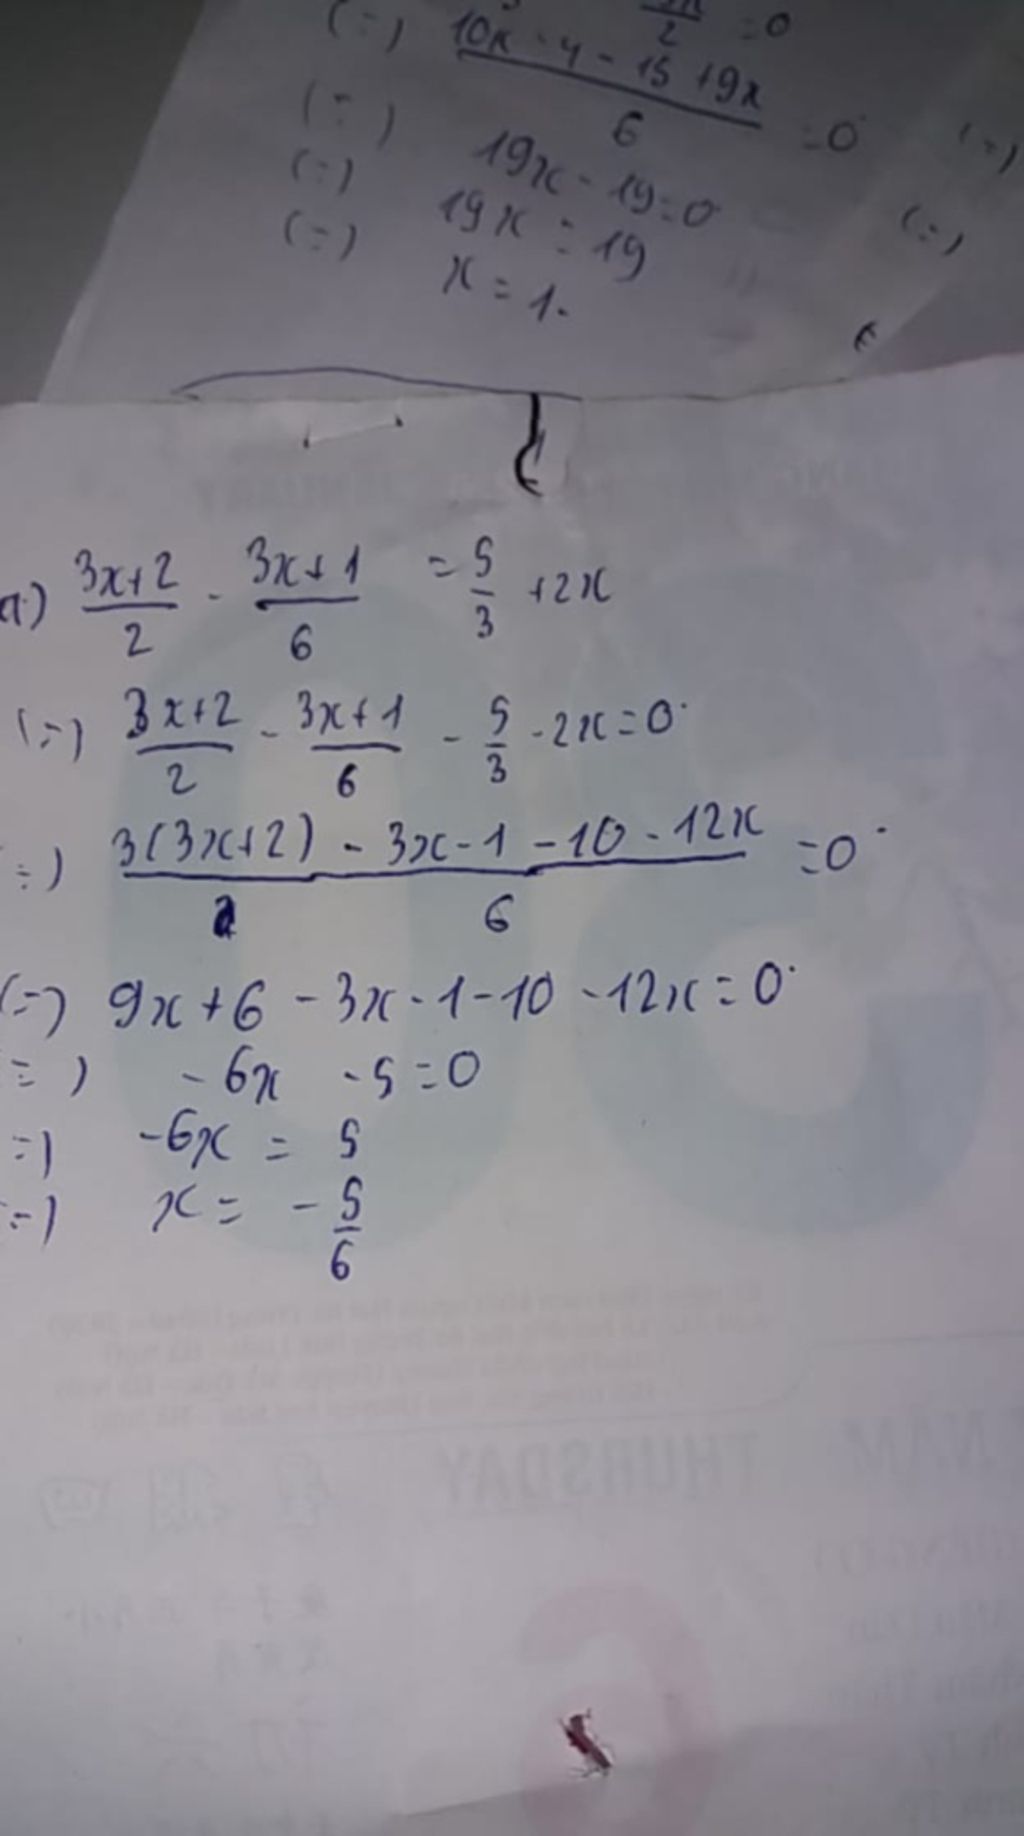 (=) (10x - 4 - 15 + 9x)/6 = 0
(=) 19x - 19 = 0
(=) 19x = 19
(=) x = 1.
a) (3x+2)/2 - (3x+1)/6 = 5/3 + 2x
(=) (3x+2)/2 - (3x+1)/6 - 5/3 - 2x = 0
=) (3(3x+2) - 3x - 1 - 10 - 12x)/6 = 0
(=) 9x + 6 - 3x - 1 - 10 - 12x = 0
=) -6x - 5 = 0
=) -6x = 5
=) x = -5/6
THURSDAY
NĂM